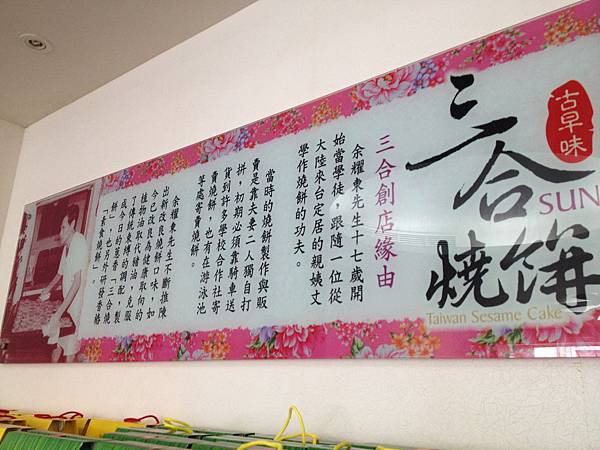 古早味
三合
燒餅
SUN
Taiwan Sesame Cake
三合創店緣由
余耀東先生十七歲開
始當學徒，跟隨一位從
大陸來台定居的親姨丈
學作燒餅的功夫。
當時的燒餅製作與販
賣是靠夫妻二人獨自打
拼，初期必須靠騎車送
貨到許多學校合作社寄
賣燒餅，也有在游泳池
等處寄賣燒餅。
余耀東先生不斷推陳
出新改良燒餅口味，如
今已改良為健康取向的
植物油取代豬油，克服
了傳統燒烤的調配，製
成今日的蔥香「三合燒
餅」，也另外研發香椿
「素食燒餅」。